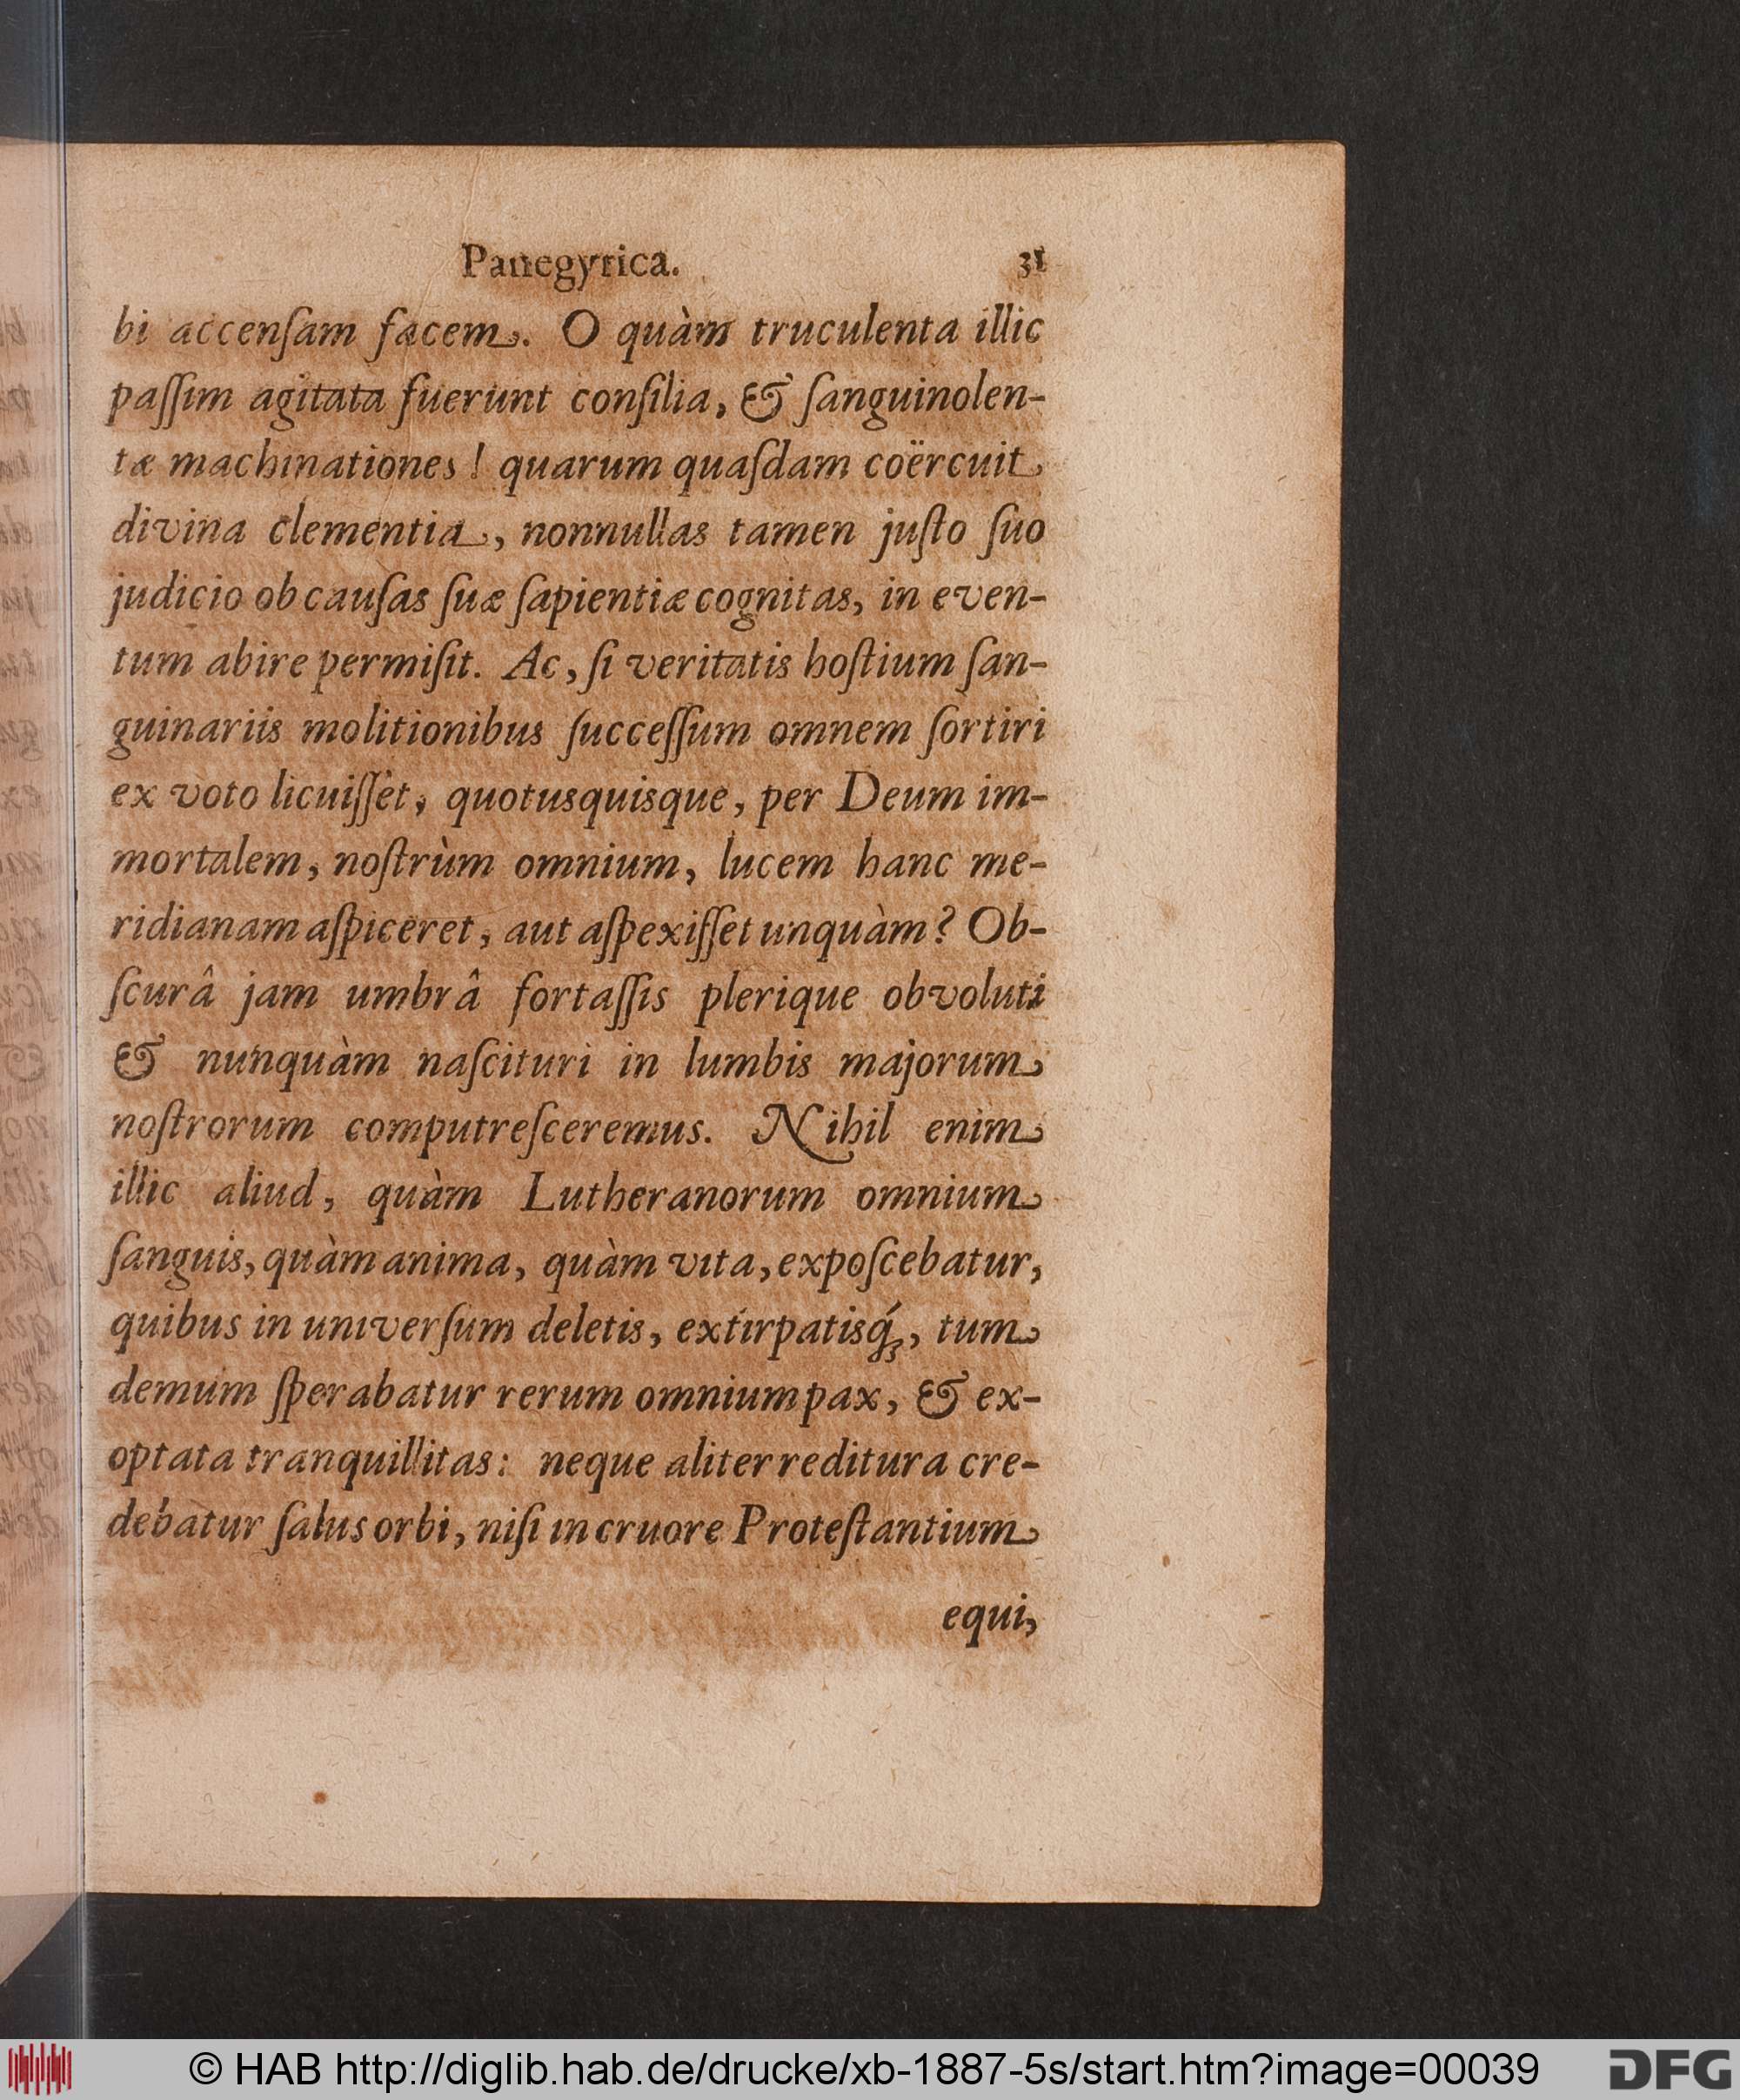 Panegyrica. 31
bi accenſam facem. O quàm truculenta illic
paſſim agitata fuerunt conſilia, & ſanguinolen-
tæ machinationes! quarum quaſdam coërcuit
divina clementia, nonnullas tamen juſto ſuo
judicio ob cauſas ſuæ ſapientiæ cognitas, in even-
tum abire permiſit. Ac, ſi veritatis hoſtium ſan-
guinariis molitionibus ſucceſſum omnem ſortiri
ex voto licuiſſet, quotusquisque, per Deum im-
mortalem, noſtrùm omnium, lucem hanc me-
ridianam aſpiceret, aut aſpexiſſet unquàm? Ob-
ſcurâ jam umbrâ fortaſſis plerique obvoluti
& nunquàm naſcituri in lumbis majorum
noſtrorum computreſceremus. Nihil enim
illic aliud, quàm Lutheranorum omnium
ſanguis, quàm anima, quàm vita, expoſcebatur,
quibus in univerſum deletis, extirpatisq́ꝫ, tum
demum ſperabatur rerum omnium pax, & ex-
optata tranquillitas: neque aliter reditura cre-
debatur ſalus orbi, niſi in cruore Proteſtantium
equi,
© HAB http://diglib.hab.de/drucke/xb-1887-5s/start.htm?image=00039
DFG